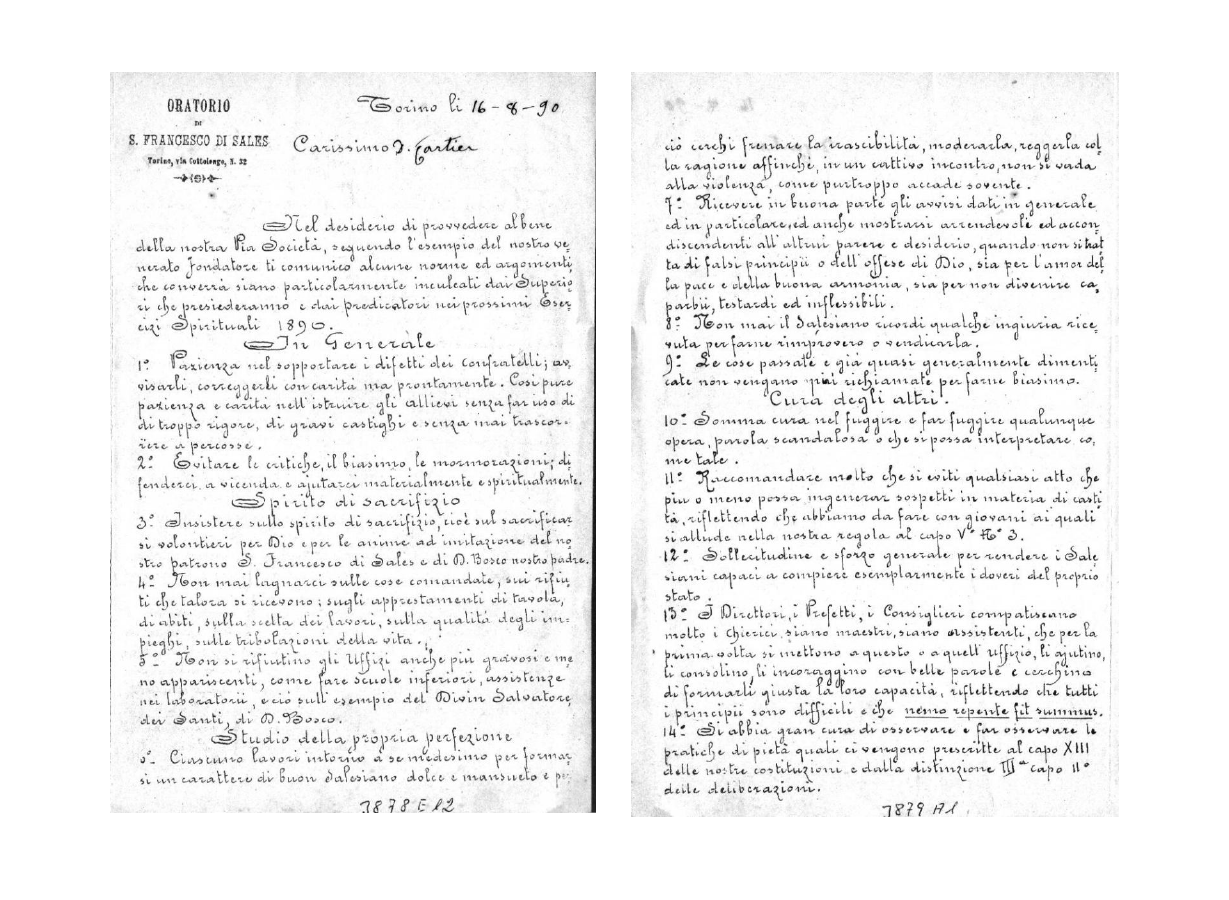 ORATORIO
DI
S. FRANCESCO DI SALES
Torino, via Cottolengo, N. 32
Torino li 16-8-90
Carissimo D. Cartier
Nel desiderio di provvedere al bene
della nostra Pia Società, seguendo l'esempio del nostro ve=
nerato Fondatore ti comunico alcune norme ed argomenti
che converrà siano particolarmente inculcati dai Superio=
ri che presiederanno e dai predicatori nei prossimi Eser=
cizi Spirituali 1890.
In Generàle
1° Pazienza nel sopportare i difetti dei confratelli; av=
visarli, correggerli con carità ma prontamente. Così pure
pazienza e carità nell'istruire gli allievi senza far uso di
di troppo rigore, di gravi castighi e senza mai trascor=
rere a percosse.
2° Evitare le critiche, il biasimo, le mormorazioni; di=
fenderci a vicenda e ajutarci materialmente e spiritualmente.
Spirito di sacrifizio
3° Insistere sullo spirito di sacrifizio, cioè sul sacrificar
si volontieri per Dio e per le anime ad imitazione del no=
stro patrono S. Francesco di Sales e di D. Bosco nostro padre.
4° Non mai lagnarci sulle cose comandate, sui rifiu=
ti che talora si ricevono; sugli apprestamenti di tavola,
di abiti, sulla scelta dei lavori, sulla qualità degli im=
pieghi, sulle tribolazioni della vita.
5° Non si rifiutino gli Uffizi anche più gravosi e me
no appariscenti, come fare scuole inferiori, assistenze
nei laboratorii, e ciò sull'esempio del Divin Salvatore,
dei Santi, di D. Bosco.
Studio della propria perfezione
6° Ciascuno lavori intorno a se medesimo per formar
si un carattere di buon Salesiano dolce e mansueto e per
3878 E 12
ciò cerchi frenare la irascibilità, moderarla, reggerla col=
la ragione affinchè, in un cattivo incontro, non si vada
alla violenza, come purtroppo accade sovente.
7° Ricevere in buona parte gli avvisi dati in generale
ed in particolare, ed anche mostrarsi arrendevole ed accon=
discendenti all'altrui parere e desiderio, quando non si trat
ta di falsi principii o dell'offese di Dio, sia per l'amor del
la pace e della buona armonia, sia per non divenire ca=
parbii, testardi ed inflessibili.
8° Non mai il Salesiano ricordi qualche ingiuria rice=
vuta per farne rimprovero o vendicarla.
9° Le cose passate e già quasi generalmente dimenti=
cate non vengano più richiamate per farne biasimo.
Cura degli altri.
10° Somma cura nel fuggire e far fuggire qualunque
opera, parola scandalosa o che si possa interpretare co=
me tale.
11° Raccomandare molto che si eviti qualsiasi atto che
più o meno possa ingenerar sospetti in materia di casti
tà, riflettendo che abbiamo da fare con giovani ai quali
si allude nella nostra regola al capo V° N° 3.
12° Sollecitudine e sforzo generale per rendere i Sale
siani capaci a compiere esemplarmente i doveri del proprio
stato.
13° I Direttori, i Prefetti, i Consiglieri compatiscano
molto i chierici, siano maestri, siano assistenti, che per la
prima volta si mettono a questo o a quell'uffizio, li ajutino,
li consolino, li incoraggino con belle parole e cerchino
di formarli giusta la loro capacità, riflettendo che tutti
i principii sono difficili e che nemo repente fit summus.
14° Si abbia gran cura di osservare e far osservare le
pratiche di pietà quali ci vengono prescritte al capo XIII
delle nostre costituzioni e dalla distinzione III ª capo II°
delle deliberazioni.
3879 A1